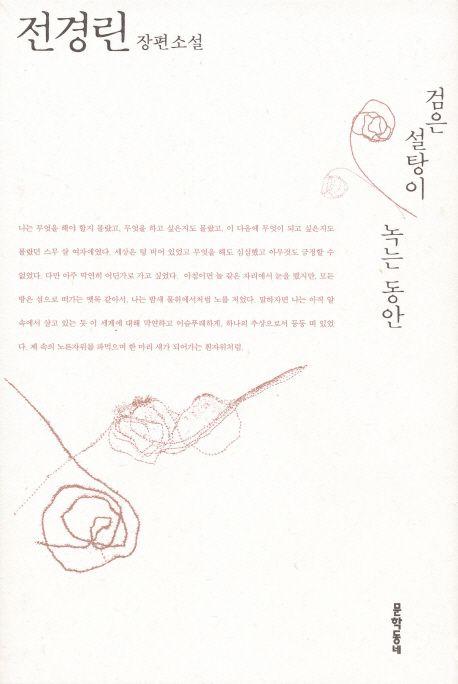 전경린 장편소설
검은
설탕이
녹는 동안
나는 무엇을 해야 할지 몰랐고, 무엇을 하고 싶은지도 몰랐고, 이 다음에 무엇이 되고 싶은지도
몰랐던 스무 살 여자에였다. 세상은 텅 비어 있었고 무엇을 해도 심심했고 아무것도 긍정할 수
없었다. 다만 아주 막연히 어딘가로 가고 싶었다. 아침이면 늘 같은 자리에서 눈을 떴지만, 모든
밤은 섬으로 떠가는 뗏목 같아서, 나는 밤새 물위에서처럼 노를 저었다. 말하자면 나는 아직 알
속에서 살고 있는 듯 이 세계에 대해 막연하고 어슴푸레하게, 하나의 추상으로서 둥둥 떠 있었
다. 제 속의 노른자위를 파먹으며 한 마리 새가 되어가는 흰자위처럼.
문학동네